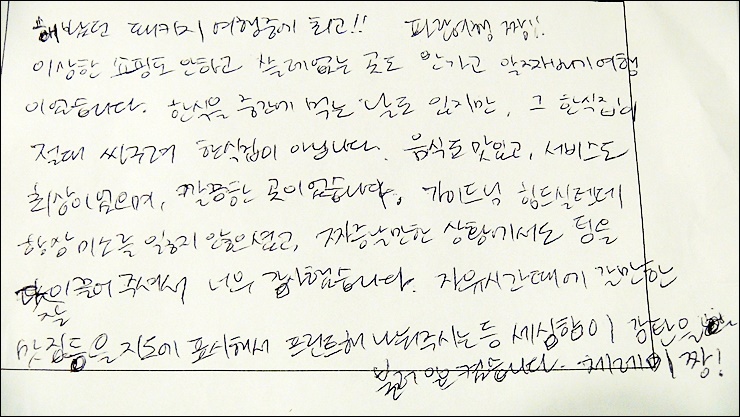 해봤던 패키지 여행중에 최고!! 파란여행 짱!!
이상한 쇼핑도 안하고 쓸데없는 곳도 안가고 알짜배기여행
이었습니다. 한식을 중간에 먹는 날도 있지만, 그 한식집이
절대 싸구려 한식집이 아닙니다. 음식도 맛있고, 서비스도
최상이었으며, 깔끔한 곳이었습니다. 가이드님 힘드실텐데
항상 미소를 잃지 않으셨고, 짜증날만한 상황에서도 팀을
잘 이끌어 주셔서 너무 감사했습니다. 자유시간때에 갈만한
맛집들을 지도에 표시해서 프린트해 나눠주시는 등 세심함이 감탄을
불러 일으켰습니다. 짱!